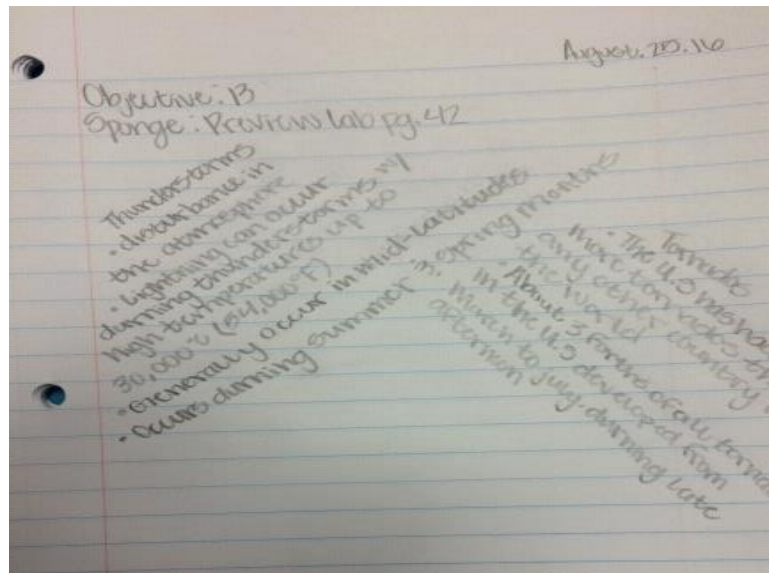 August. 25. 16
Objective: 13
Sponge: Preview Lab pg. 42
Thunderstorms
• disturbance in
the atmosphere
• Lightning can occur
durning thunderstorms w/
high temperatures up to
30,000°c (54,000°F)
• Generally occur in mid-latitudes
• occurs durning summer 'n' spring months
Tornados
• The U.S has had
more tornados
any other country
the world
• About 3 forths of all
in the U.S developed from
March to July. durning late
afternoon